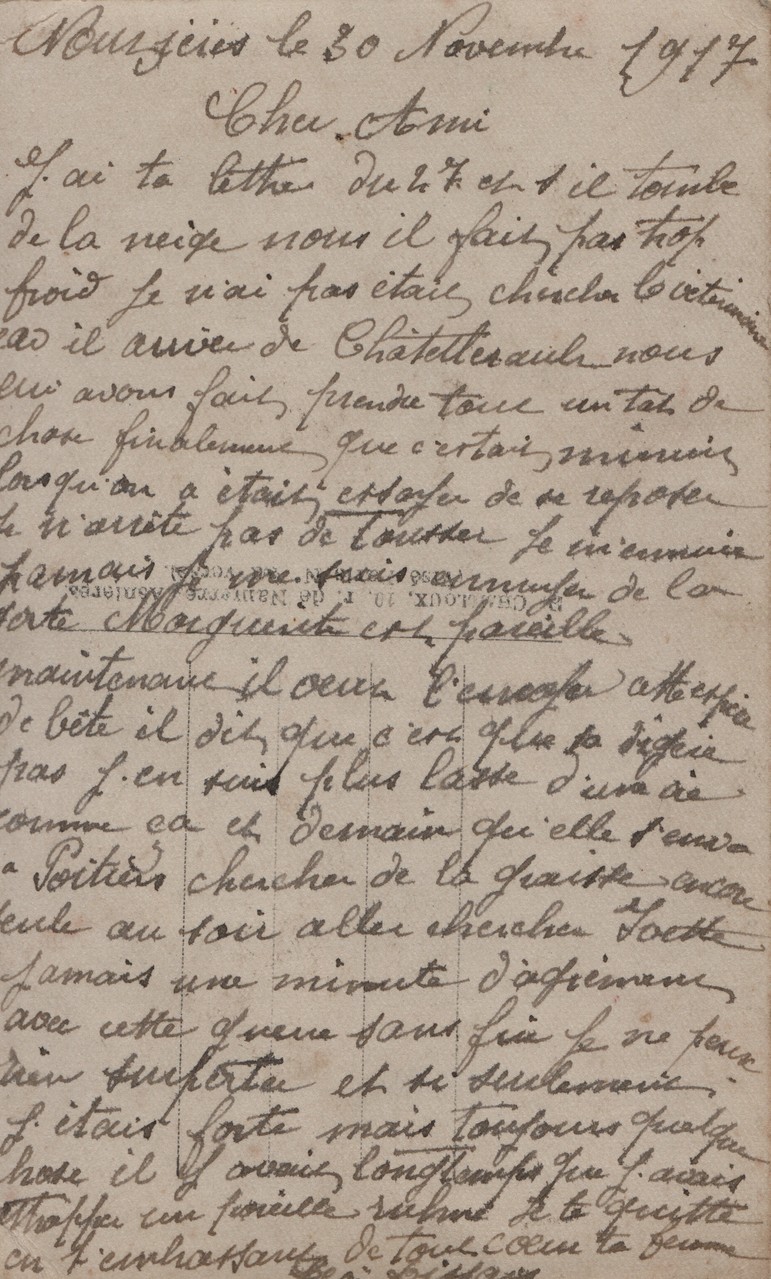 le 30 Novembre 1917
Cher Ami
J.ai ta lettre du 27 et s il tombe
de la neige nous il fait pas trop
froid Je n'ai pas était chercher le vétérinaire
car il arrive de Châtellerault nous
lui avons fait prendre tout un tas de
chose finalement que c'estait minuit
lorsqu'on a était essayer de se reposer
Je n'arrête pas de tousser Je m'ennuie
Jamais Je me suis ennuyer de la
sorte Marguerite est pareille
maintenant il veut l'envoyer cette espèce
de bête il dit que c'est que sa digère
pas J.en suis plus lasse d'une vie
comme ça et demain qu'elle s'en va
a Poitiers chercher de la graisse encore
seule au soir aller chercher
Jamais une minute d'agrément
avec cette guerre sans fin Je ne peux
rien supporter et si seulement
J.étais forte mais toujours quelque
chose il y avait longtemps que J.avais
attrapper un pareille rhume Je te quitte
en t'embrassant de tout coeur ta femme